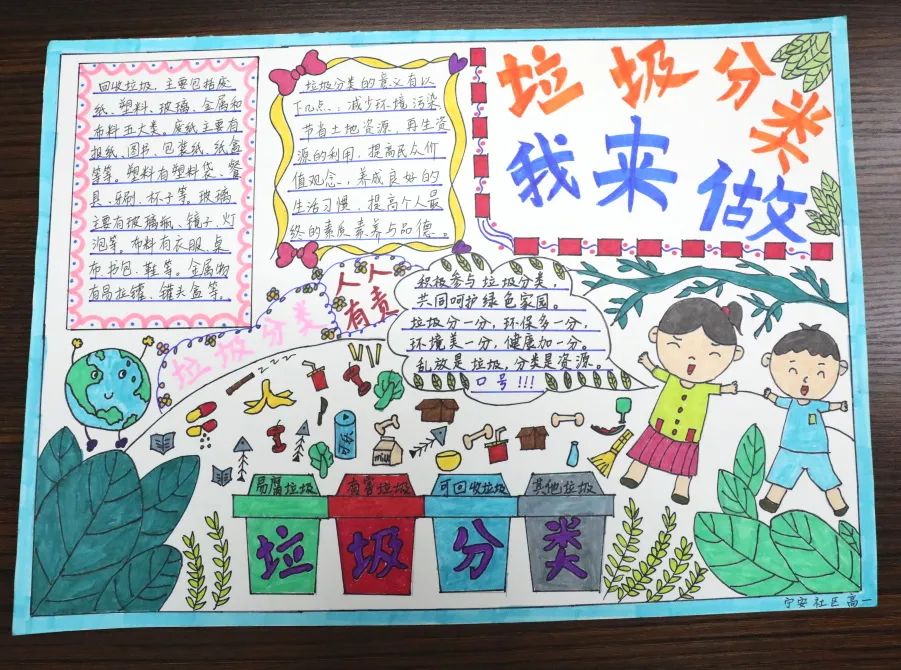 回收垃圾，主要包括废
纸、塑料、玻璃、金属和
布料五大类。废纸主要有
报纸、图书、包装纸、纸盒
等等。塑料有塑料袋、餐
具、牙刷、杯子等。玻璃
主要有玻璃瓶、镜子、灯
泡等。布料有衣服、桌
布、书包、鞋等。金属物
有易拉罐、罐头盒等。
垃圾分类的意义有以
下几点：减少环境污染，
节省土地资源，再生资
源的利用，提高民众价
值观念，养成良好的
生活习惯，提高个人最
终的素质素养与品德。
垃圾分类
我来做
垃圾分类
人人
有责
积极参与垃圾分类，
共同呵护绿色家园。
垃圾分一分，环保多一分，
环境美一分，健康加一分。
乱放是垃圾，分类是资源。
口号!!!
zzz
milk
易腐垃圾
有害垃圾
可回收垃圾
其他垃圾
垃圾分类
宁安社区高一